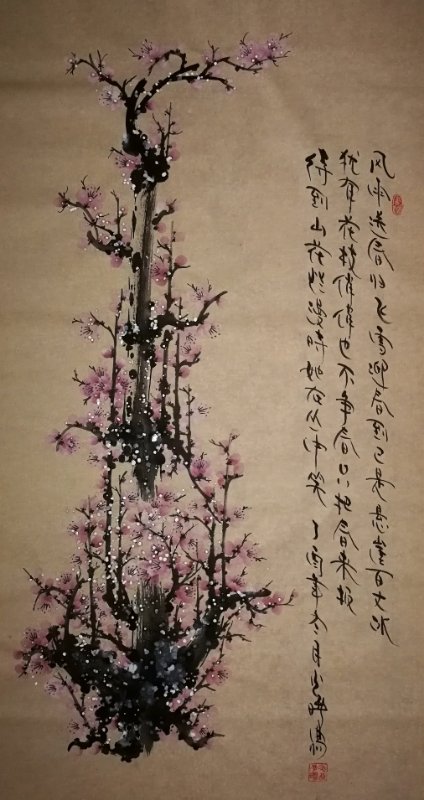 风雨送春归飞雪迎春到已是悬崖百丈冰
犹有花枝俏俏也不争春只把春来报
待到山花烂漫时她在丛中笑 丁酉年冬月